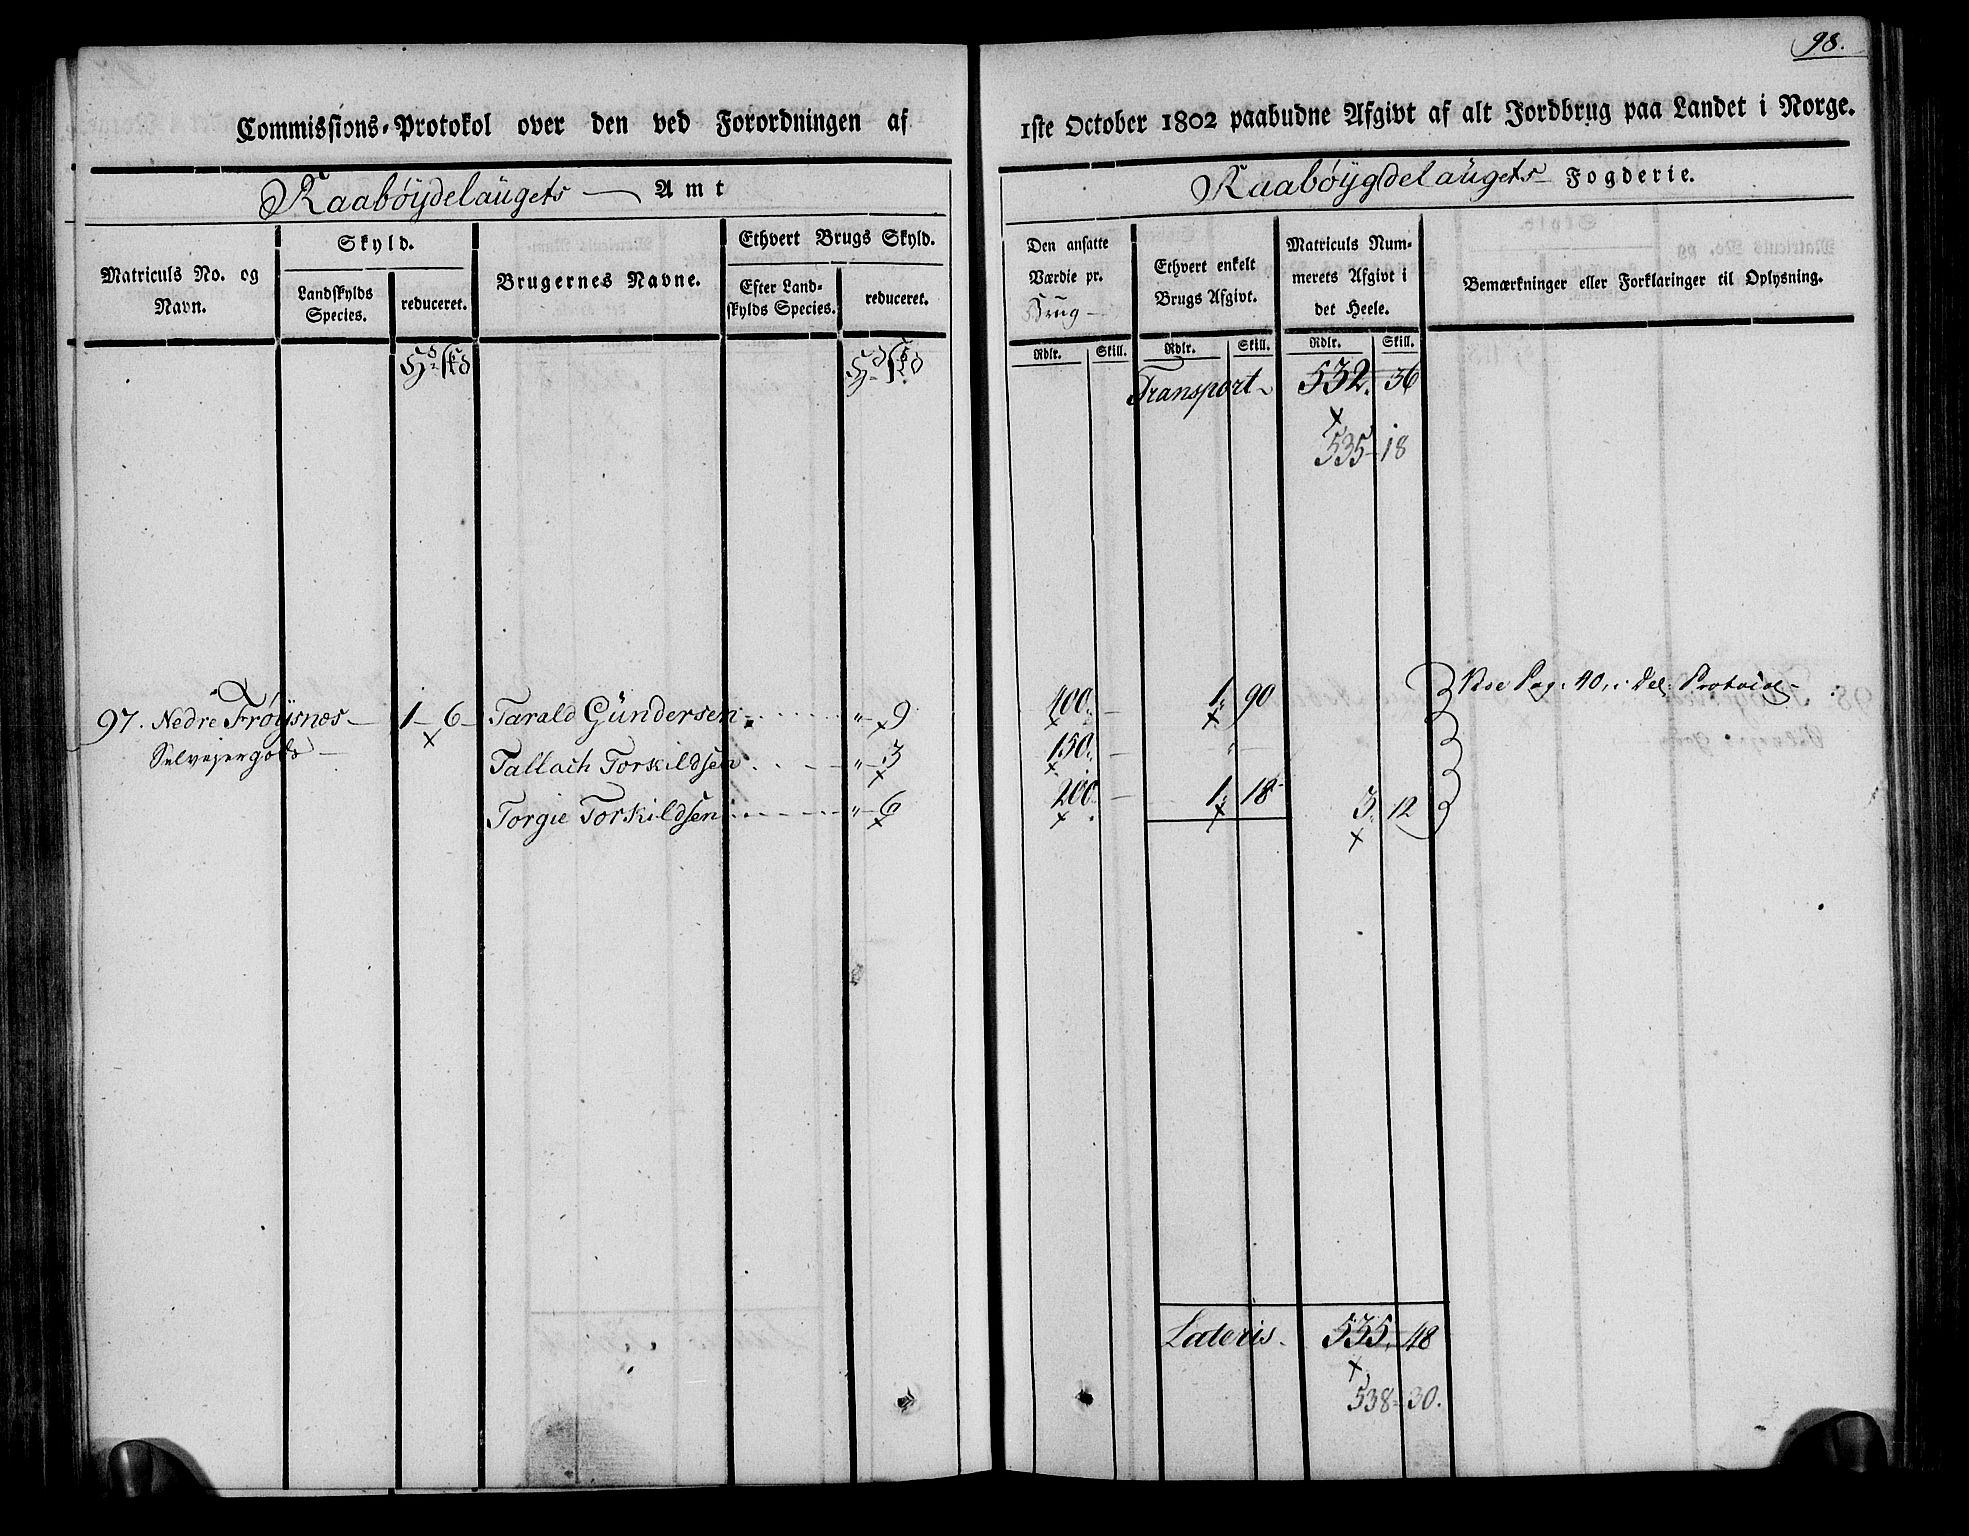 98.
Commissions-Protokol over den ved Forordningen af 1ste October 1802 paabudne Afgivt af alt Jordbrug paa Landet i Norge.
Raabøydelaugets Amt
Raabøygdelaugets Fogderie.
Matriculs No. og Navn.
Skyld.
Landskylds Species.
reduceret.
Brugernes Navne.
Ethvert Brugs Skyld.
Efter Landskylds Species.
reduceret.
Den ansatte Værdie pr. Brug
Ethvert enkelt Brugs Afgivt.
Matriculs Nummerets Afgivt i det Heele.
Bemærkninger eller Forklaringer til Oplysning.
Rdlr. Skill. Rdlr. Skill. Rdlr. Skill.
Hd skd
Hd skd
Transport 532. 36
535-18
97. Nedre Frøysnes 1 - 6 Tarald Gundersen " 9 400. 1. 90 Vise Pag. 40. i Del. Protocol
Selvejergods Tallach Torkildsen " 3 150. "
Torgie Torkildsen " 6 200. 1. 18 3. 12
Lateris 535. 48
538-30.